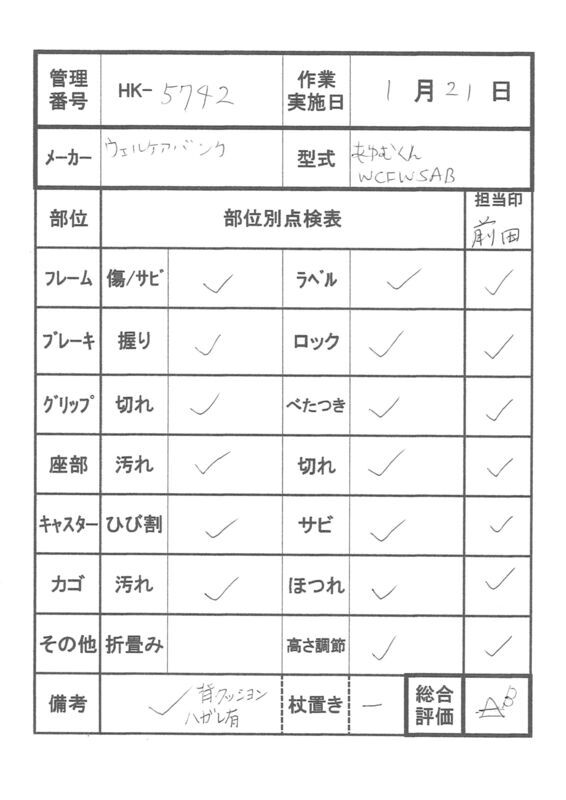 管理番号 HK-5742 作業実施日 1月21日
メーカー ウェルケアバンク 型式 あゆむくん WCFWSAB
部位 部位別点検表 担当印 前田
フレーム 傷/サビ ✓ ラベル ✓ ✓
ブレーキ 握り ✓ ロック ✓ ✓
グリップ 切れ ✓ べたつき ✓ ✓
座部 汚れ ✓ 切れ ✓ ✓
キャスター ひび割 ✓ サビ ✓ ✓
カゴ 汚れ ✓ ほつれ ✓ ✓
その他 折畳み 高さ調節 ✓ ✓
備考 ✓ 背クッション ハガレ有 杖置き ー 総合評価 B